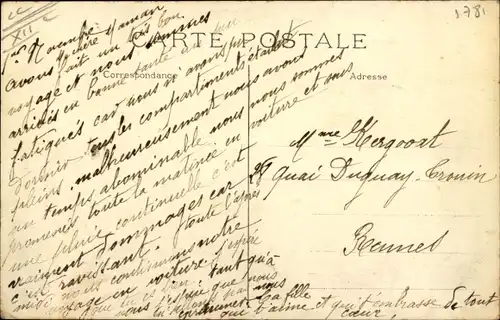 1781
XII
CARTE POSTALE
Correspondance
Adresse
1er Novembre
Maman
avons fait un très bon
voyage et nous sommes
arrivés en bonne santé un peu
fatigués car nous n'avons pu
dormir tous les compartiments étaient
pleins. malheureusement nous avons
un temps abominable nous nous sommes
promenés toute la matinée en voiture et sous
une pluie continuelle c'est
vraiment dommage car
c'est ravissant. toute l'après
midi nous continuons notre
voyage en voiture
tant qu'à
nous
ta fille
qui t'aime et qui t'embrasse de tout
cœur
Mme Kergoat
28 Quai Duguay-Trouin
Rennes